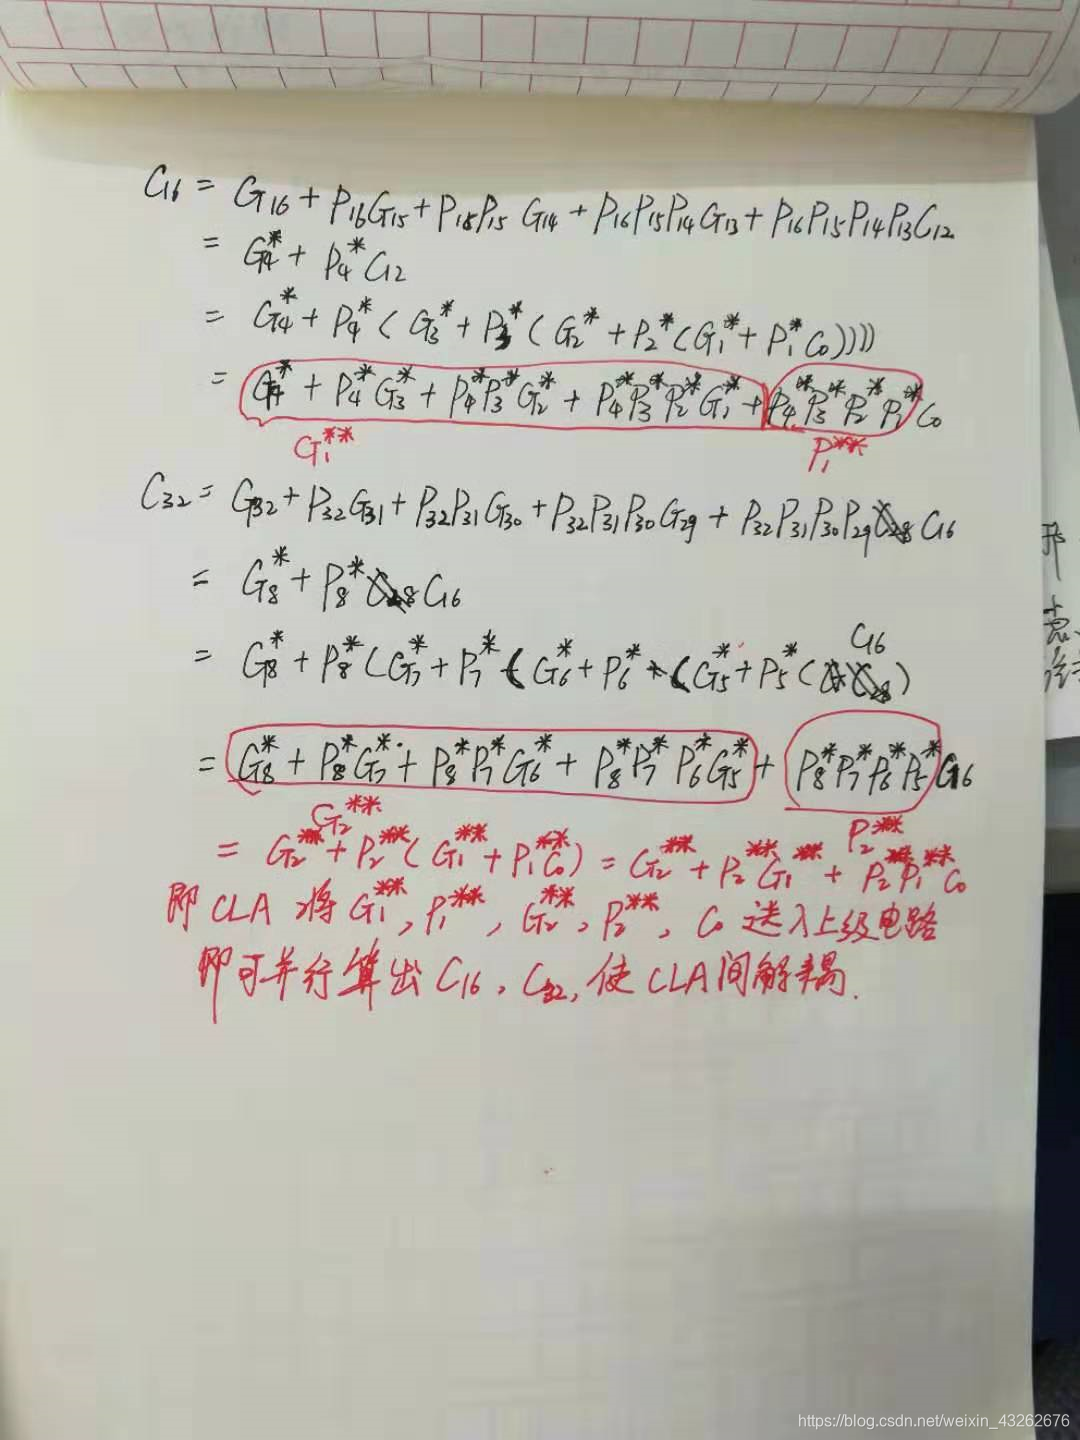 C16 = G16 + P16G15 + P16P15 G14 + P16P15P14G13 + P16P15P14P13C12
= G4* + P4* C12
= G4* + P4* ( G3* + P3* ( G2* + P2* ( G1* + P1* C0 ))))
= G4* + P4* G3* + P4*P3* G2* + P4*P3*P2* G1* + P4*P3*P2*P1* C0
G1** P1**
C32 = G32 + P32G31 + P32P31G30 + P32P31P30G29 + P32P31P30P29 C16
= G8* + P8* C16
C16
= G8* + P8* ( G7* + P7* ( G6* + P6* ( G5* + P5* ( )
= G8* + P8*G7* + P8*P7*G6* + P8*P7*P6*G5* + P8*P7*P6*P5* C16
G2** P2**
= G2** + P2** ( G1** + P1**C0 ) = G2** + P2**G1** + P2**P1**C0
即CLA 将 G1**, P1**, G2**, P2**, C0 送入上级电路
即可并行算出 C16, C32, 使CLA间解耦.
https://blog.csdn.net/weixin_43262676